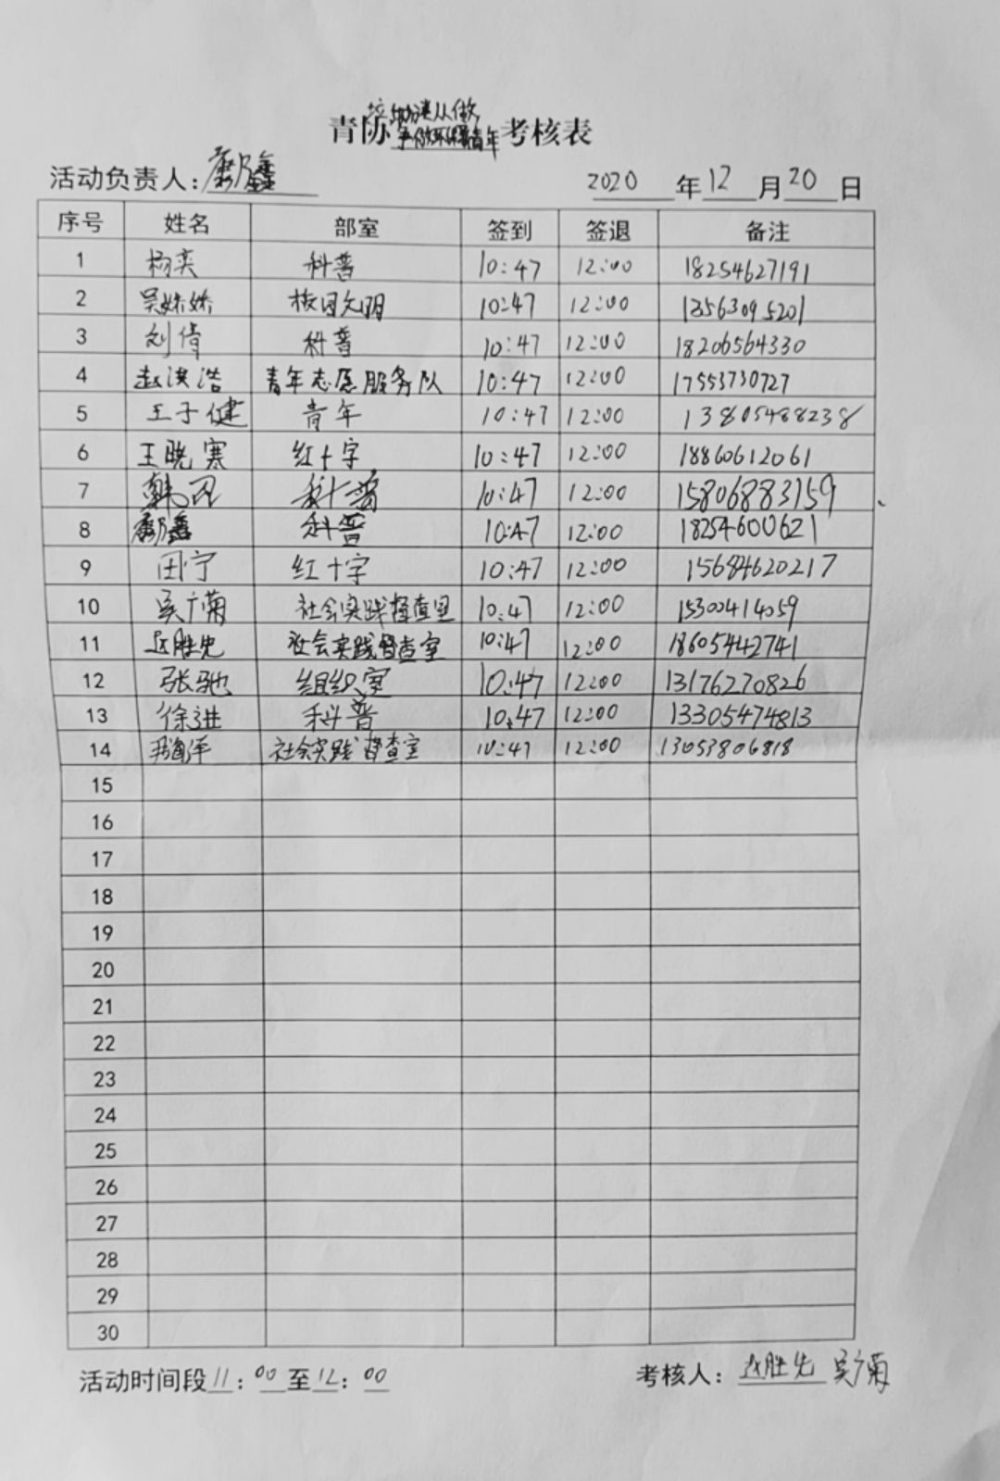 青协 考核表
活动负责人： 鑫 2020 年 12 月 20 日
序号 姓名 部室 签到 签退 备注
1 杨奕 科普 10:47 12:00 18254627191
2 吴娇娇 校园文明 10:47 12:00 13563095201
3 刘倩 科普 10:47 12:00 18206564330
4 赵洪浩 青年志愿服务队 10:47 12:00 17553730727
5 王子健 青年 10:47 12:00 13805488238
6 王晓寒 红十字 10:47 12:00 18860612061
7 韩 科普 10:47 12:00 15806883159
8 鑫 科普 10:47 12:00 18254600621
9 田宁 红十字 10:47 12:00 15684620217
10 吴广菊 社会实践督查室 10:47 12:00 15300414059
11 胜先 社会实践督查室 10:47 12:00 18605442741
12 张驰 组织室 10:47 12:00 13176270826
13 徐进 科普 10:47 12:00 13305474813
14 社会实践督查室 10:47 12:00 13053806818
15
16
17
18
19
20
21
22
23
24
25
26
27
28
29
30
活动时间段 11：00 至 12：00 考核人： 胜先 吴广菊